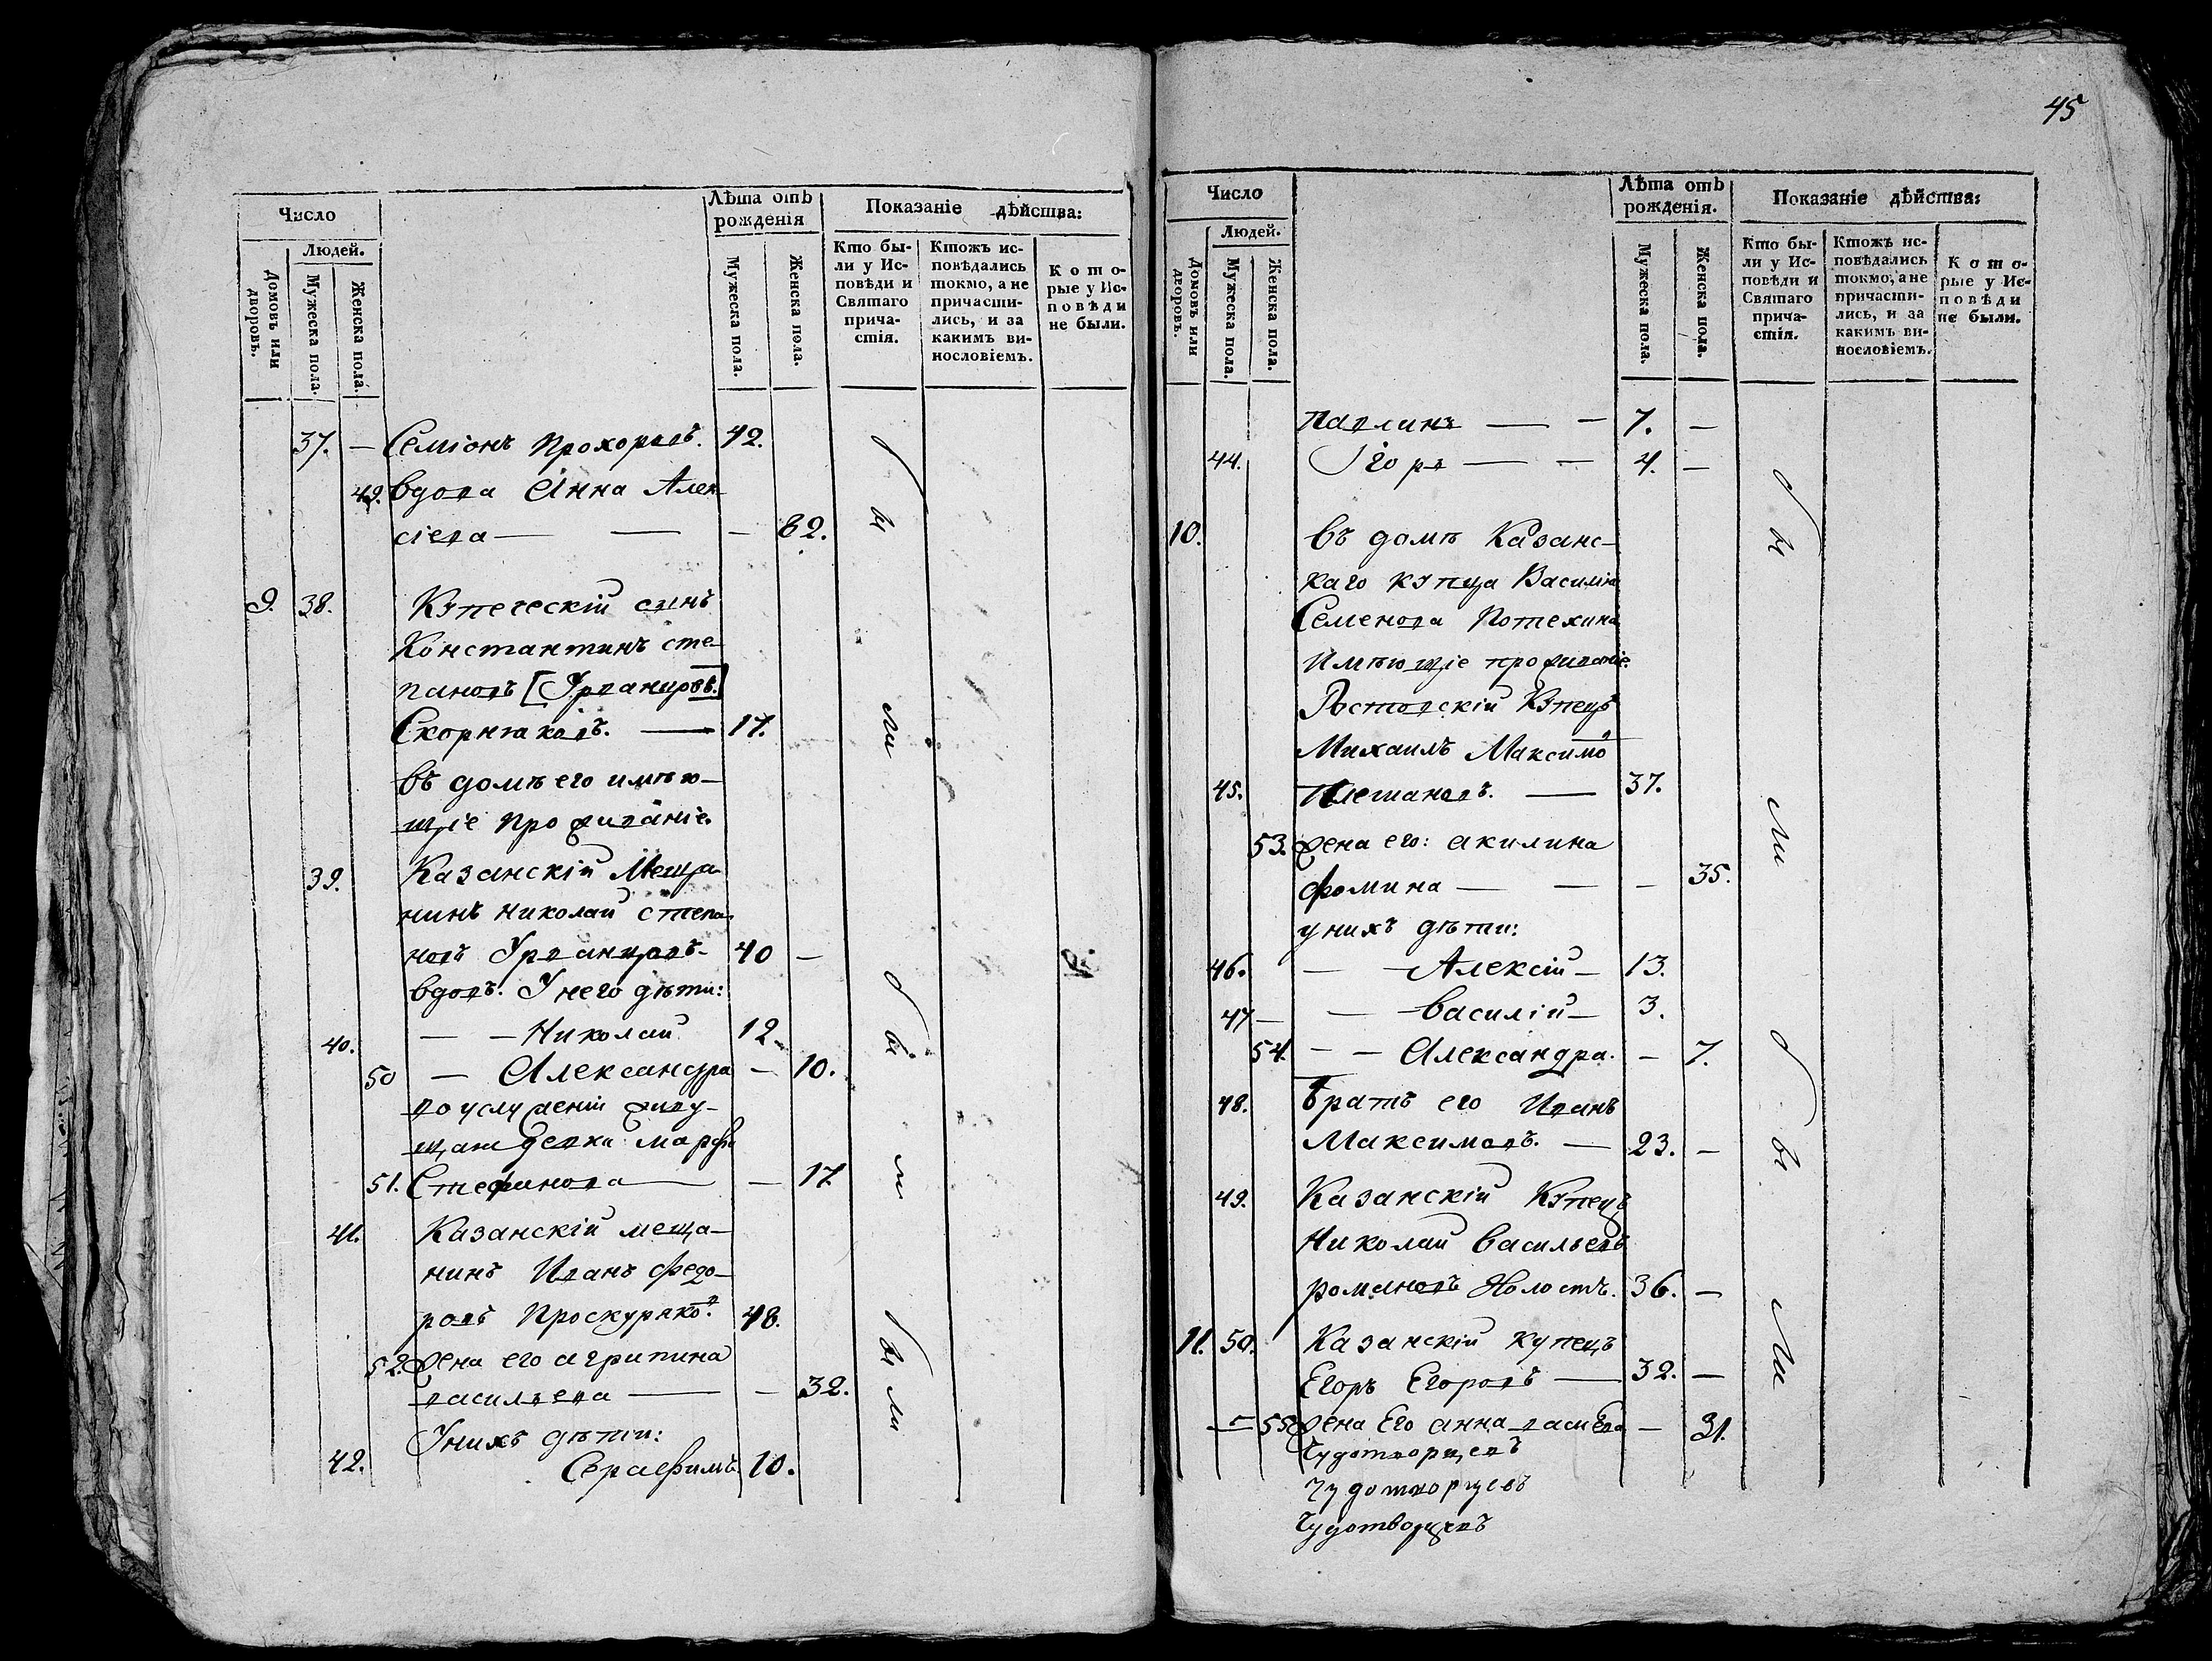 Число
Людей.
Домовъ или дворовъ.
Мужеска пола.
Женска пола.
Лѣта отъ рожденія
Мужеска пола.
Женска пола.
Показаніе дѣйства:
Кто бы-
ли у Ис-
повѣди и
Святаго
прича-
стія.
Ктожъ ис-
повѣдались
токмо, а не
причасти-
лись, и за
какимъ ви-
нословіемъ.
Кото-
рые у Ис-
повѣди
не были.
37. — Семіонъ Прохоровъ. 42.
49. вдова Анна Алек
сіева — — — 82.
9. 38. Купеческій сынъ
Константинъ сте-
пановъ [Урванцовъ.]
Скорняковъ. — 17.
въ домѣ его имѣю-
щіе проживаніе.
39. Казанскій Меща-
нинъ Николай степа-
новъ Урванцовъ- 40 —
вдовъ. У него дѣти:
40. — — Николай 12.
50 — Александра — 10.
во услуженіи живу-
щая девка Марфа
51. Стефанова — — 17
41. Казанскій меща-
нинъ Иванъ Федо-
ровъ Проскуряков. 48.
52. жена его агрипина
васильева — — 32.
У нихъ дѣти:
42. Серафимъ. 10.
бы
ли
бы
ли
бы
ли
45
Число
Людей.
Домовъ или дворовъ.
Мужеска пола.
Женска пола.
Лѣта отъ рожденія.
Мужеска пола.
Женска пола.
Показаніе дѣйства:
Кто бы-
ли у Ис-
повѣди и
Святаго
прича-
стія.
Ктожъ ис-
повѣдались
токмо, а не
причасти-
лись, и за
какимъ ви-
нословіемъ.
Кото-
рые у Ис-
повѣди
не были.
Павлинъ — — 7. —
44. Ігорь — — 4. —
10. въ домѣ Казанс-
каго купца Василія
Семенова Потехина
Имѣющіе проживаніе.
Ростовскій Купецъ
Михаилъ Максимо
45. Плешановъ. — 37.
53. жена его: акилина
фомина — — — 35.
у нихъ дѣти:
46. — — Алексій — 13.
47 — — Василій — 3.
54. — — Александра. — 7.
48. Братъ его Иванъ
Максимовъ. — 23. —
49. Казанскій Купецъ
Николай Васильевъ
романовъ Холостъ. 36. —
11. 50. Казанскій купецъ
Егоръ Егоровъ — 32. —
— 55 жена Его анна васиева — 31.
Чудотворцевъ
Чудотворцевъ
Чудотворцевъ
бы
ли
бы
ли